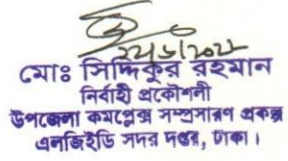 ২২/৬/২০২২
মোঃ সিদ্দিকুর রহমান
নির্বাহী প্রকৌশলী
উপজেলা কমপ্লেক্স সম্প্রসারণ প্রকল্প
এলজিইডি সদর দপ্তর, ঢাকা।